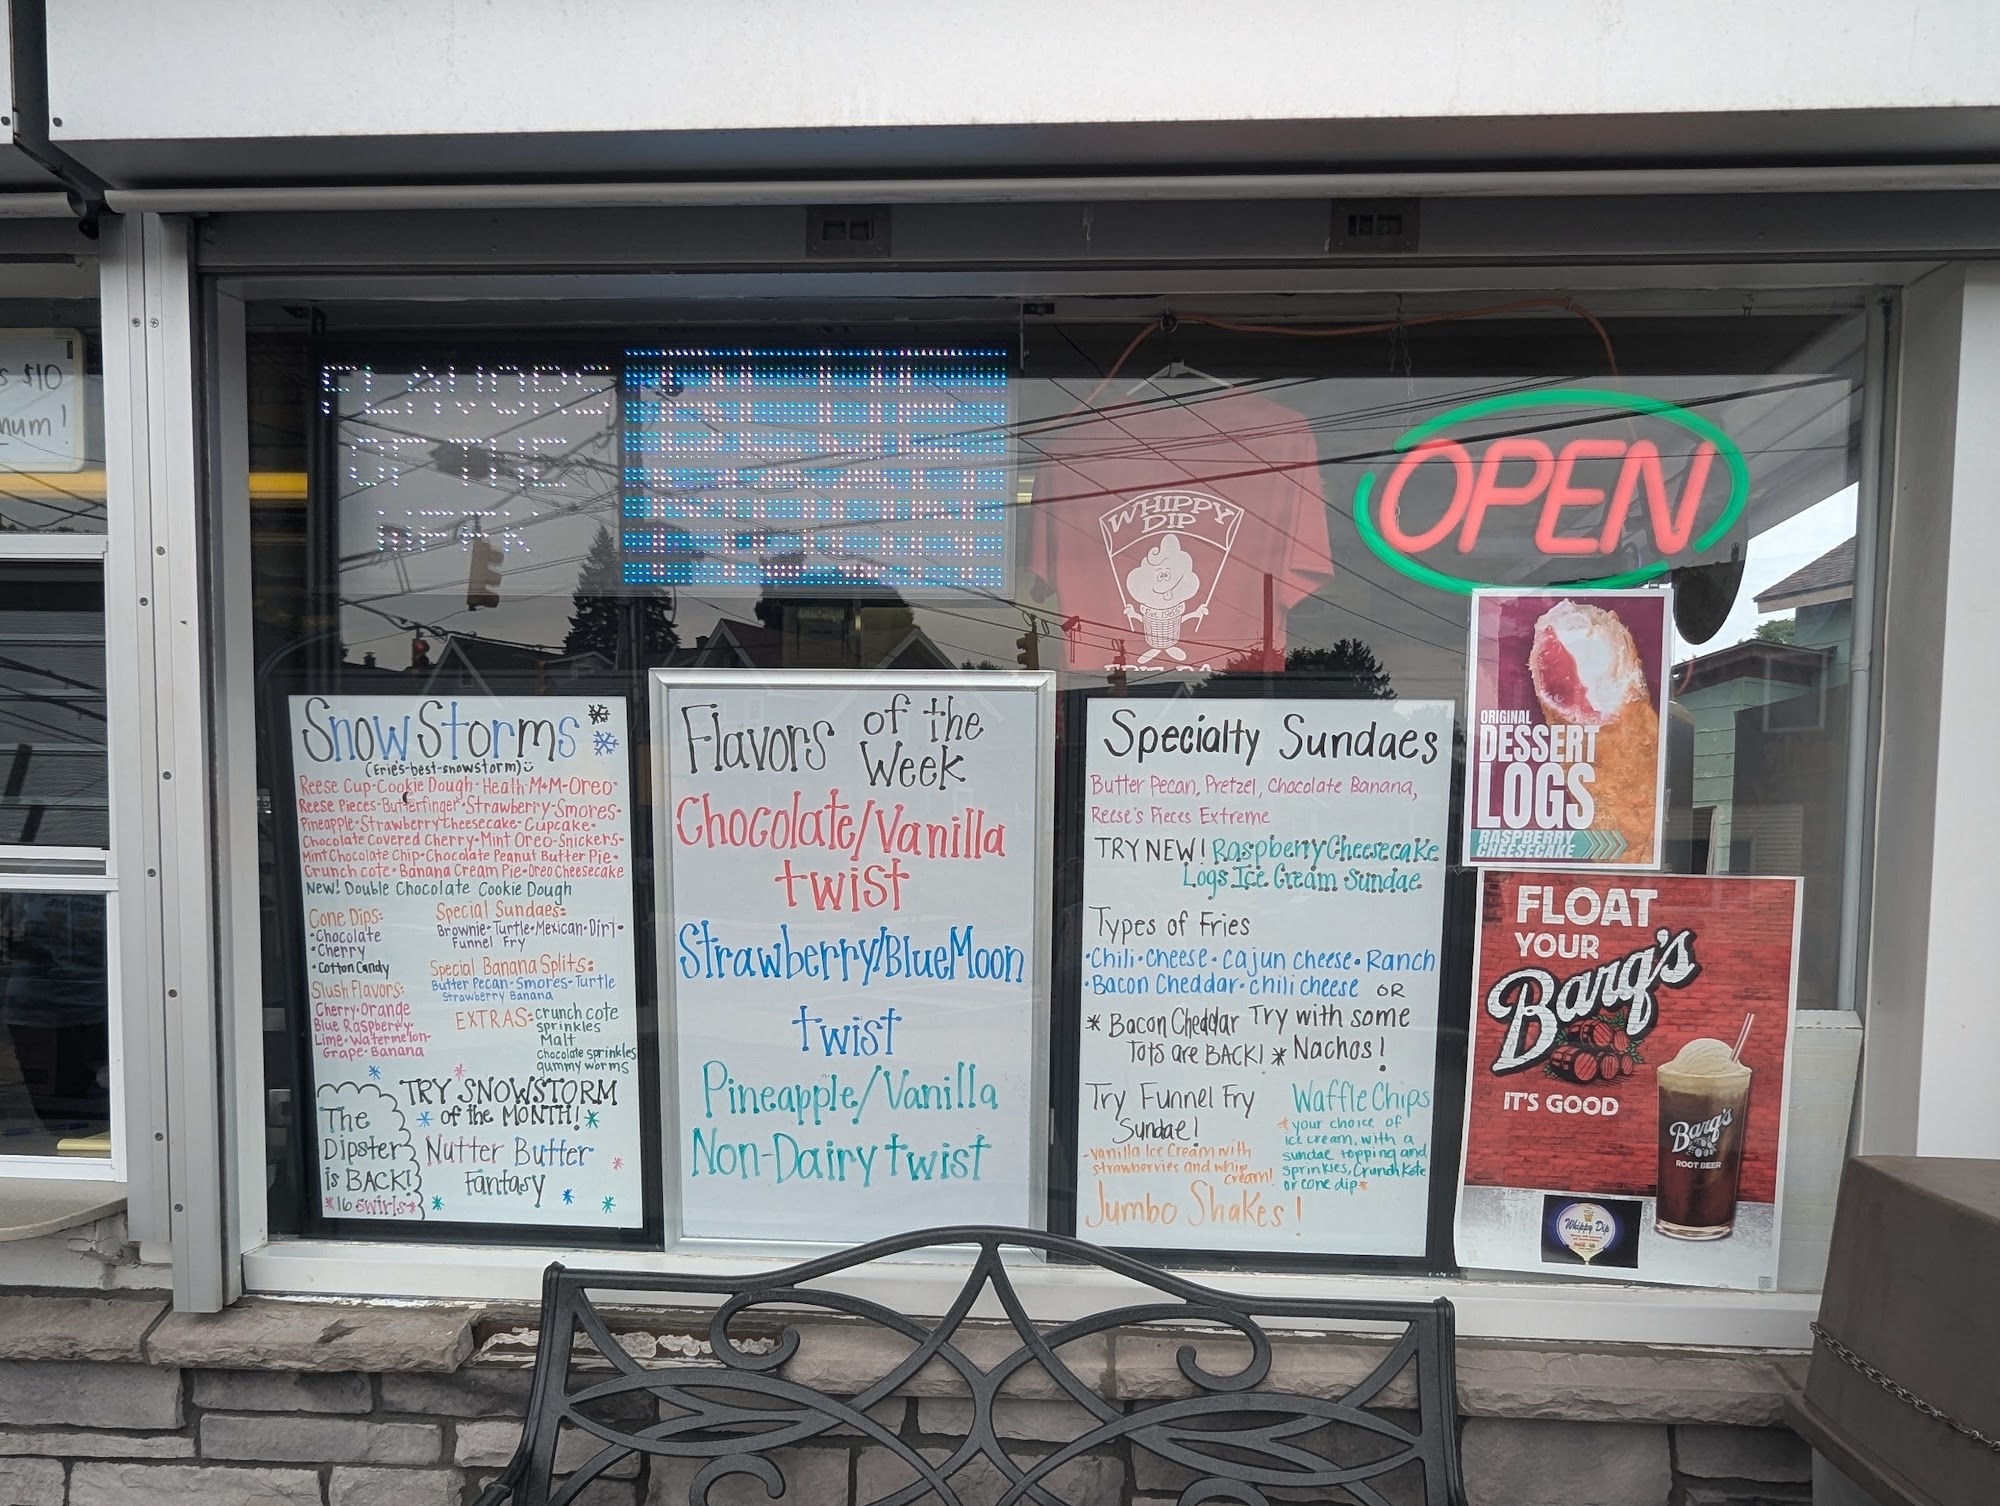 s $10
num!
FLAVORS
OF THE
WEEK
OPEN
WHIPPY
DIP
Est. 1965
ERIE PA
SnowStorms
(Erie's-best-snowstorm)
Reese Cup-Cookie Dough-Heath-M&M-Oreo-
Reese Pieces-Butterfinger-Strawberry-Smores-
Pineapple-Strawberry Cheesecake-Cupcake-
Chocolate Covered Cherry-Mint Oreo-Snickers-
Mint Chocolate Chip-Chocolate Peanut Butter Pie-
Crunch cote-Banana Cream Pie-Oreo Cheesecake
New! Double Chocolate Cookie Dough
Cone Dips:
•Chocolate
•Cherry
•Cotton Candy
Slush Flavors:
Cherry-Orange
Blue Raspberry-
Lime-Watermelon-
Grape-Banana
Special Sundaes:
Brownie-Turtle-Mexican-Dirt-
Funnel Fry
Special Banana Splits:
Butter Pecan-Smores-Turtle
Strawberry Banana
EXTRAS: crunch cote
sprinkles
Malt
chocolate sprinkles
gummy worms
The
Dipster
is BACK!
*16 swirls*
TRY SNOWSTORM
of the MONTH!
Nutter Butter
Fantasy
Flavors of the
Week
Chocolate/Vanilla
twist
Strawberry/BlueMoon
twist
Pineapple/Vanilla
Non-Dairy twist
Specialty Sundaes
Butter Pecan, Pretzel, Chocolate Banana,
Reese's Pieces Extreme
TRY NEW! Raspberry Cheesecake
Logs Ice Cream Sundae
Types of Fries
•Chili•cheese•cajun cheese•Ranch
•Bacon Cheddar•chili cheese OR
* Bacon Cheddar
Tots are BACK! *
Try with some
Nachos!
Try Funnel Fry
Sundae!
-vanilla Ice Cream with
strawberries and whip
cream!
Jumbo Shakes!
Waffle Chips
*your choice of
ice cream, with a
sundae topping and
sprinkles, Crunch Kote
or cone dip*
ORIGINAL
DESSERT
LOGS
RASPBERRY
CHEESECAKE
FLOAT
YOUR
Barq's
IT'S GOOD
Barq's
ROOT BEER
Whippy Dip